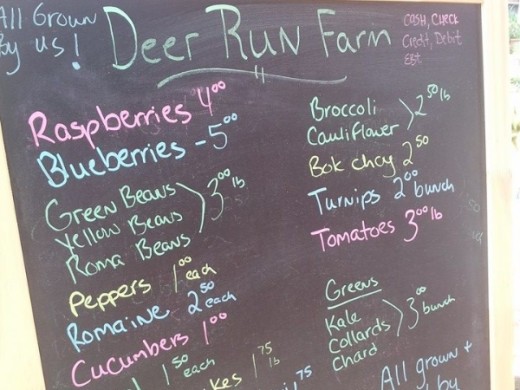 All Grown
By us!
Deer Run Farm
CASH, Check
Credit, Debit
EBt
Raspberries 4⁰⁰
Blueberries - 5⁰⁰
Green Beans
Yellow Beans
Roma Beans
3⁰⁰ lb
Peppers 1⁰⁰ each
Romaine 2⁵⁰ each
Cucumbers 1⁰⁰
1⁵⁰ each
1⁷⁵ lb
Broccoli
Cauliflower
2⁵⁰ lb
Bok choy 2⁵⁰
Turnips 2⁰⁰ bunch
Tomatoes 3⁰⁰ lb
Greens
Kale
Collards
Chard
3⁰⁰ bunch
All grown +
by